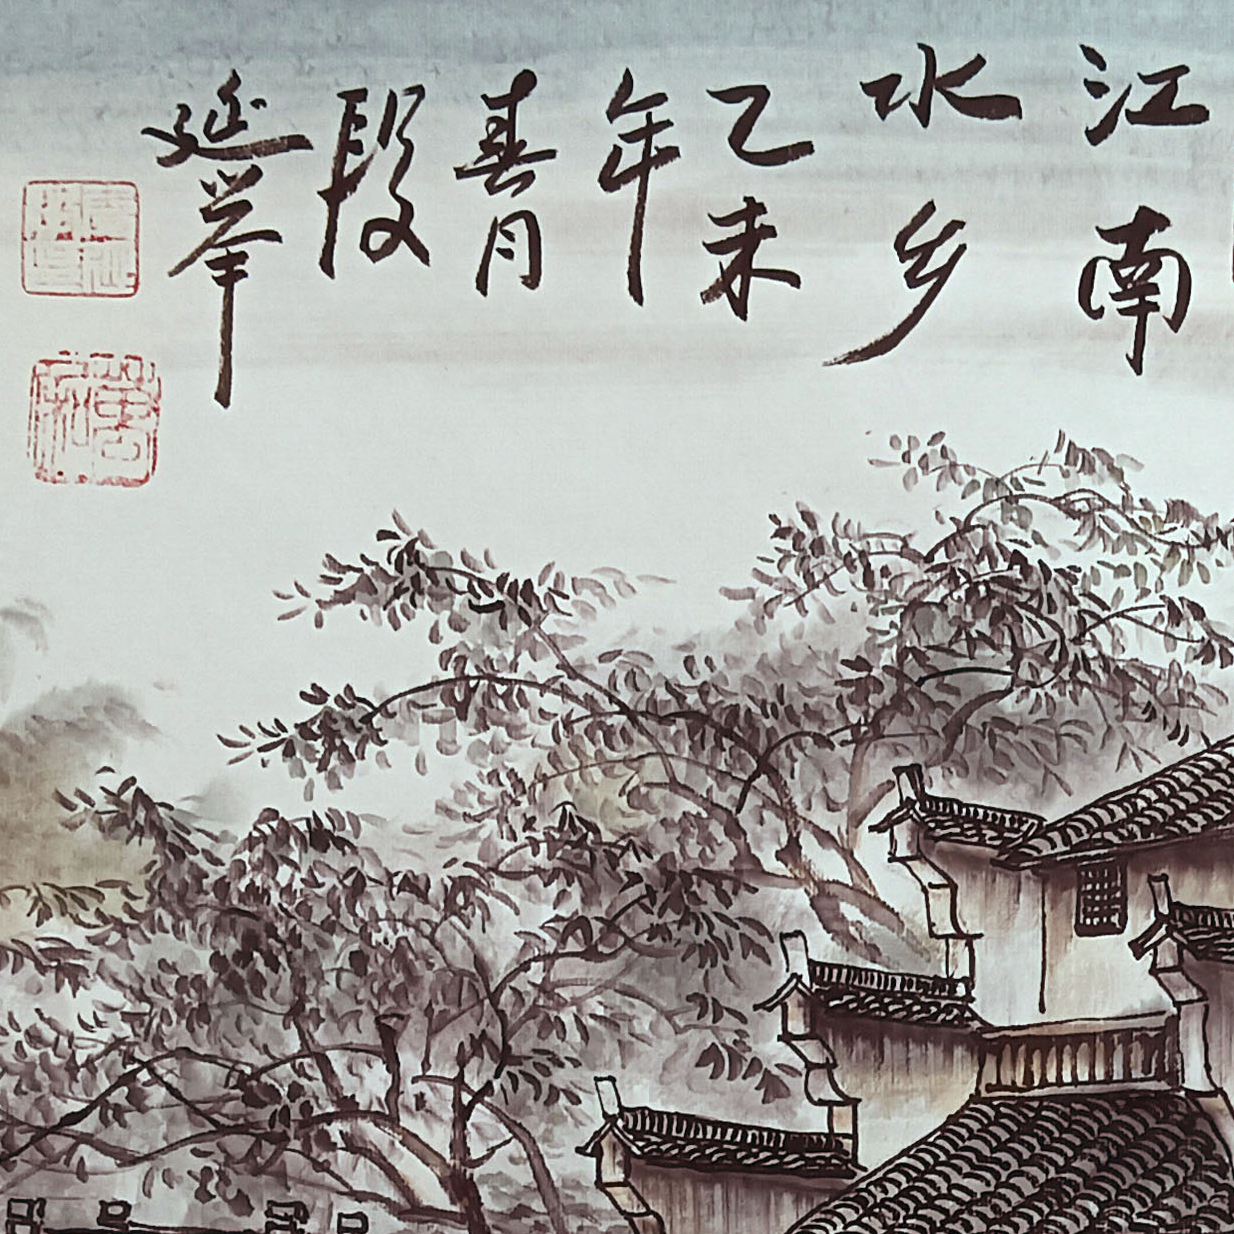 江南
水乡
乙未
年
春月
段
延举